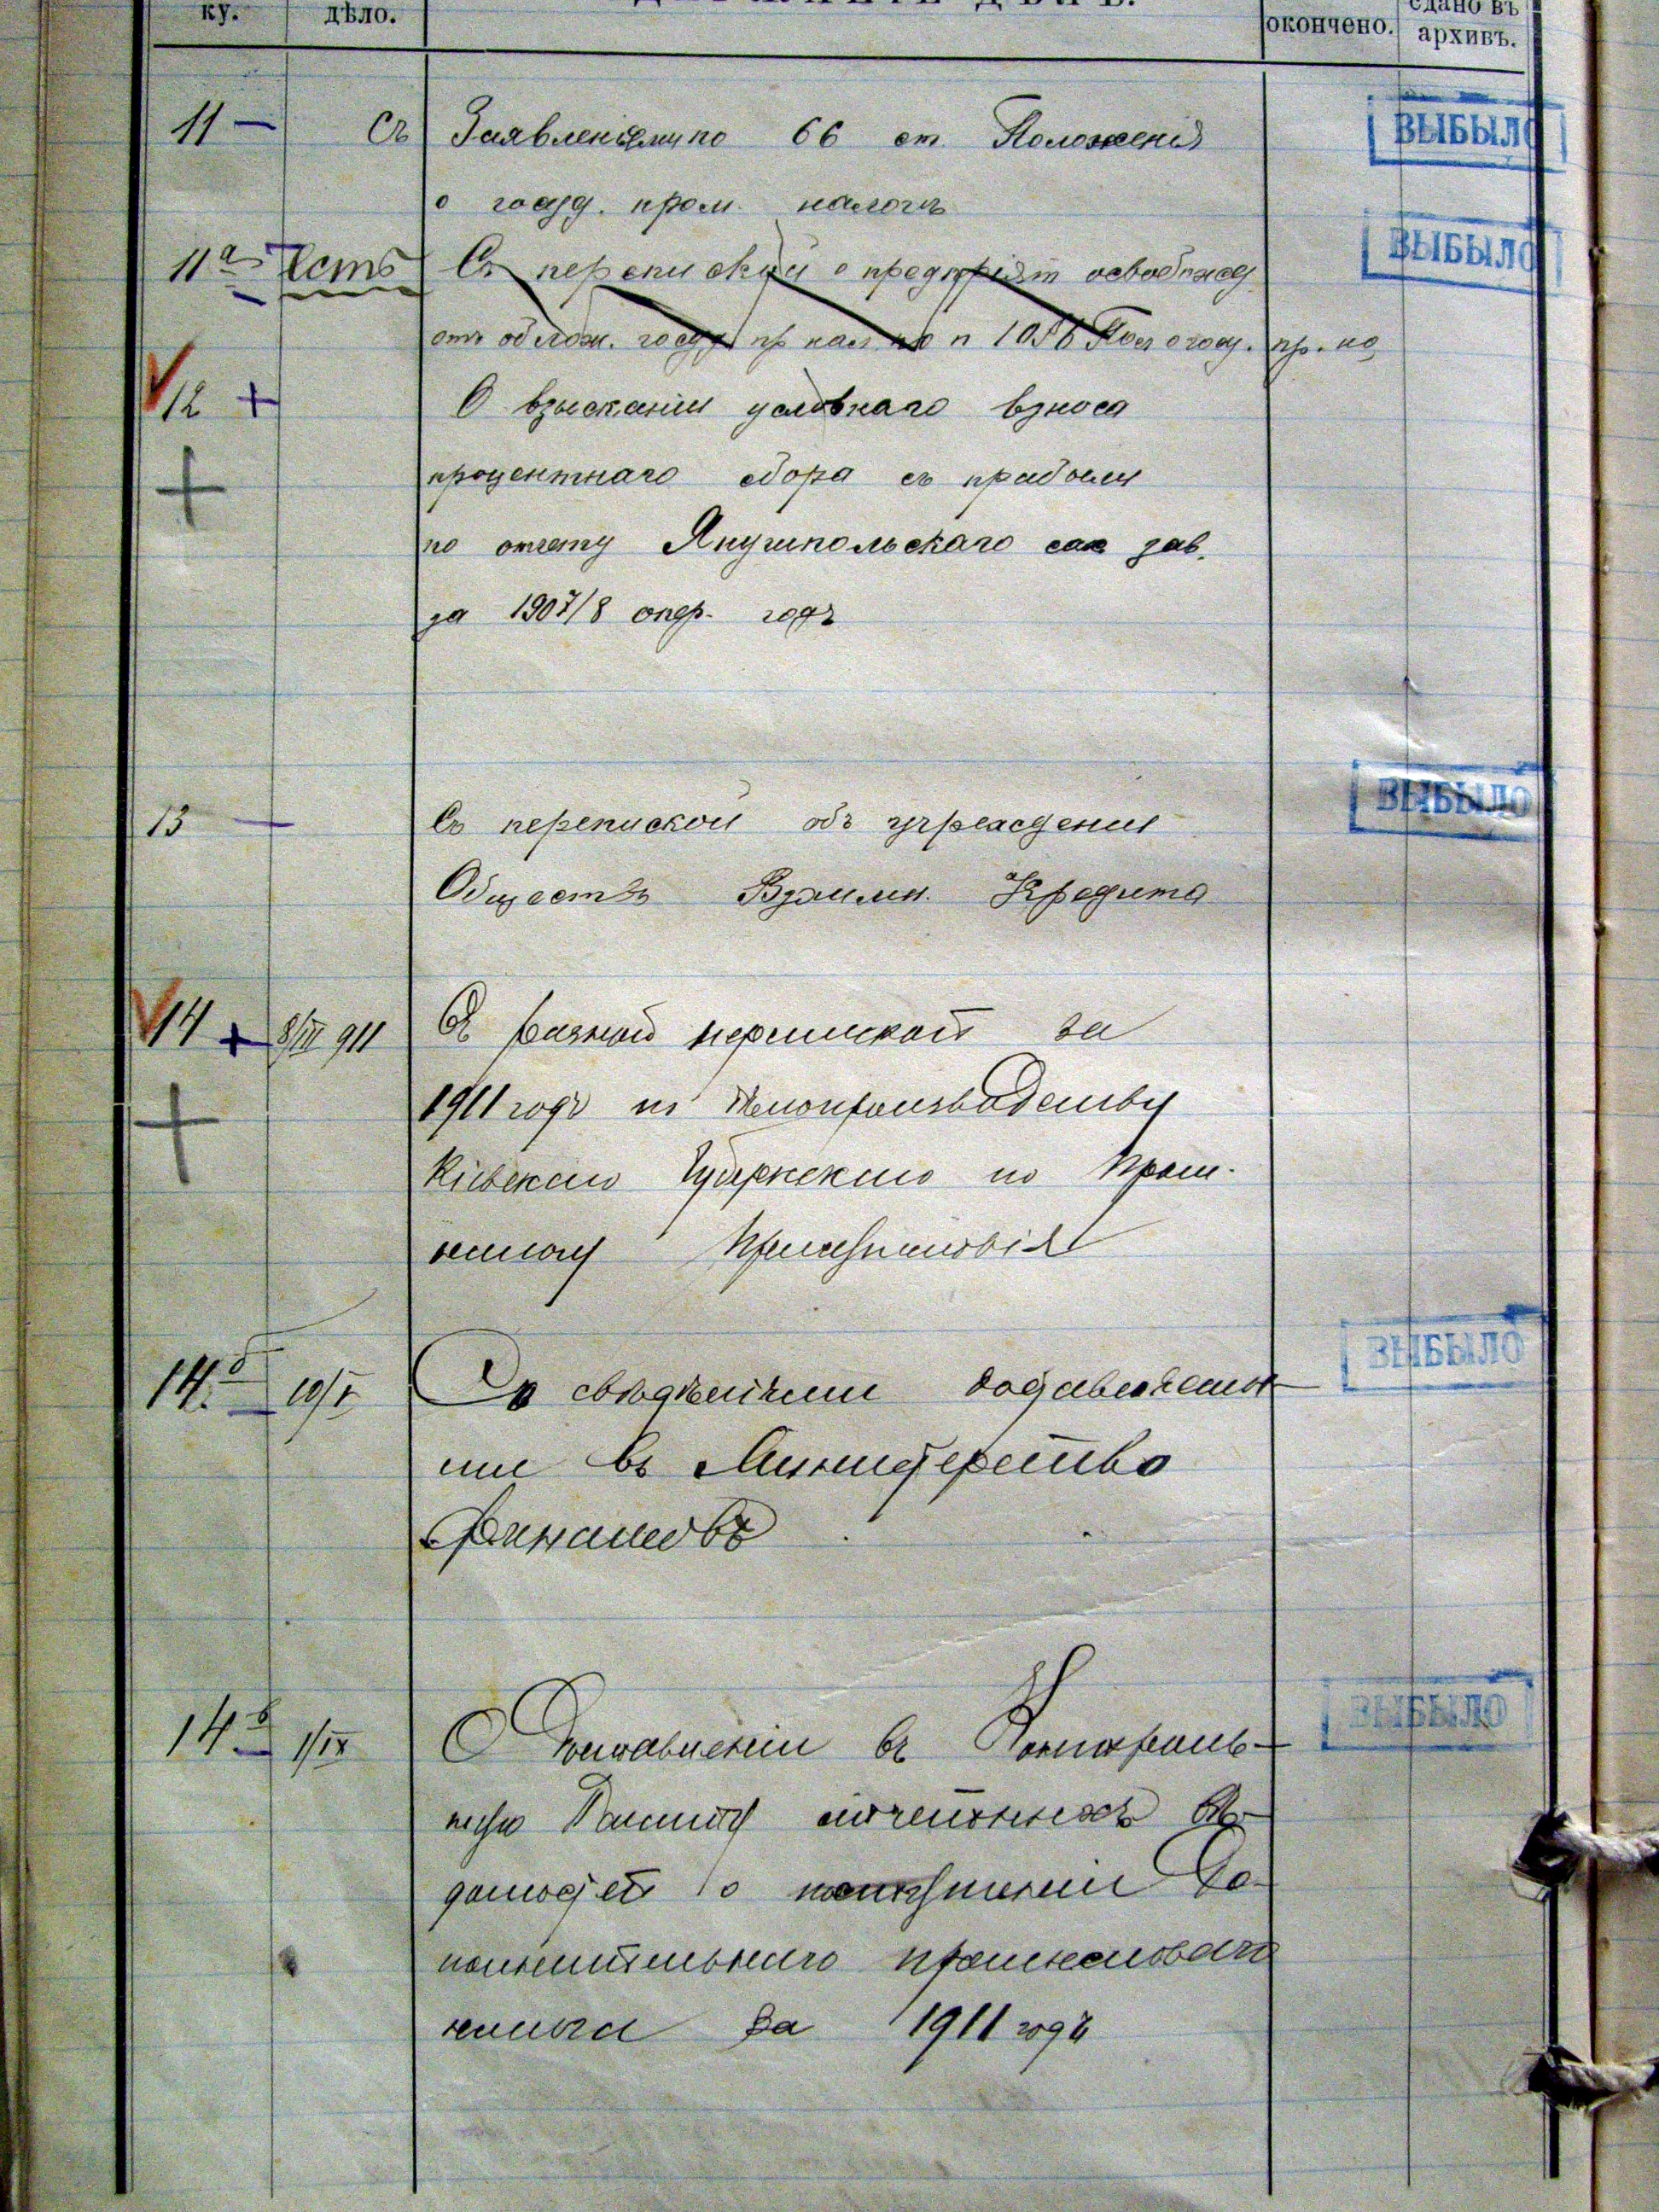 ку. дѣло. окончено. сдано въ
архивъ.
11 — Съ Заявленіями по 66 ст. Положенія ВЫБЫЛО
о госуд. пром. налогѣ
11а Есть Съ перепиской о предпріят освобожд ВЫБЫЛО
отъ облож. госуд пр нал по п 10 Пол о госуд. пр. на
12 + О взысканіи условнаго взноса
+ процентнаго сбора съ прибыли
по отчету Янушпольскаго сах зав.
за 1907/8 опер. годъ
13 — Съ перепиской объ учрежденіи ВЫБЫЛО
Обществъ Взаимн. Кредита
14 + 8/III 911 Съ разной перепиской за
+ 1911 годъ по делопроизводству
Кіевскаго Губернскаго по Пром.
налогу Присутствія
14.б 10/I Со свѣдѣніями доставляемы- ВЫБЫЛО
ми въ Министерство
Финансовъ
14в 1/IX О Доставленіи въ Контроль- ВЫБЫЛО
ную Палату отчетныхъ Вѣ-
домостей о поступленіи До-
полнительнаго промысловаго
налога за 1911 годъ